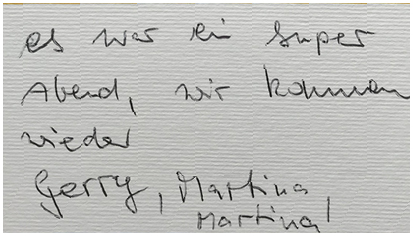 es war ein super
Abend, wir kommen
wieder
Gerry, Martina
Martina!